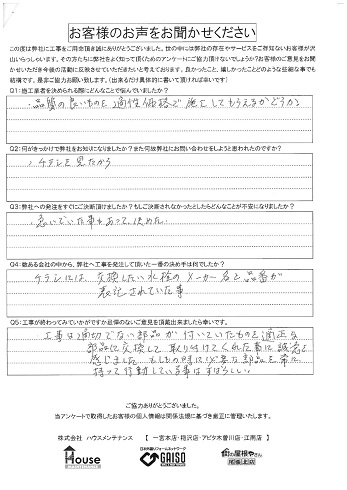 お客様のお声をお聞かせください
この度は弊社に工事をご用命頂き誠にありがとうございました。世の中には弊社の存在やサービスをご存知ないお客様が沢
山いらっしゃいます。その方たちに弊社をよく知って頂くためのアンケートにご協力頂けないでしょうか?お客様のご意見をお聞
かせいただき今後の活動に反映させていただきたいと考えております。良かったこと、嬉しかったことどのような些細な事でも
結構です。是非ご協力お願い致します。(出来るだけ具体的に書いて頂ければ幸いです)
Q1:施工業者を決められる際にどんなことで悩んでいましたか?
・品質の良いものを適性価格で施工してもらえるかどうか
Q2:何がきっかけで弊社をお知りになりましたか?また何故弊社にお問い合わせをしようと思われたのですか?
・チラシを見たから
Q3:弊社への発注をすぐにご決断頂けましたか?もしご決断されなかったとしたらどんなことが不安になりましたか?
・急いでいた事もあって、決めた。
Q4:数ある会社の中から、弊社へ工事を発注して頂いた一番の決め手は何でしたか?
チラシには、交換したい水栓のメーカー名と品番が
表記されていた事
Q5:工事が終わってみていかがですか忌憚のないご意見を頂戴出来ましたら幸いです。
工事は適切でない部品が付いていたものを適正な
部品に交換して取り付けてくれた事に誠実を
感じました もしもの時に必要な部品を常に
持って行動している事はすばらしい。
ご協力ありがとうございました。
当アンケートで取得したお客様の個人情報は関係法規に基づき厳正に管理いたします。
株式会社 ハウスメンテナンス 【 一宮本店・稲沢店・アピタ木曽川店・江南店 】
House
MAINTENANCE
日本外壁リフォームネットワーク
GAISO
街の屋根やさん
尾張北店